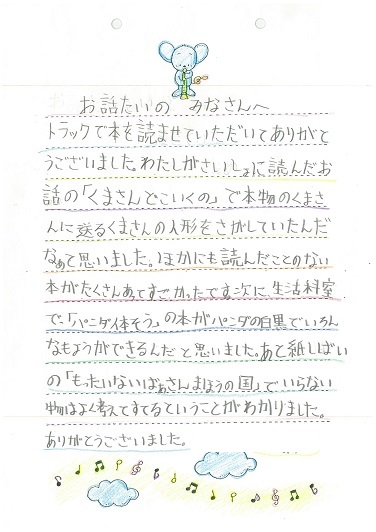 お話たいの みなさんへ
トラックで本を読ませていただいてありがと
うございました。わたしがさいしょに読んだお
話の「くまさんどこいくの」で本物のくまさ
んに送るくまさんの人形をさがしていたんだ
なぁと思いました。ほかにも読んだことのない
本がたくさんあってすごかったです。次に、生活科室
で、「パンダイ体そう」の本がパンダの白黒でいろん
なもようができるんだと思いました。あと紙しばい
の「もったいないばぁさんまほうの国」でいらない
物はよく考えてすてるということがわかりました。
ありがとうございました。